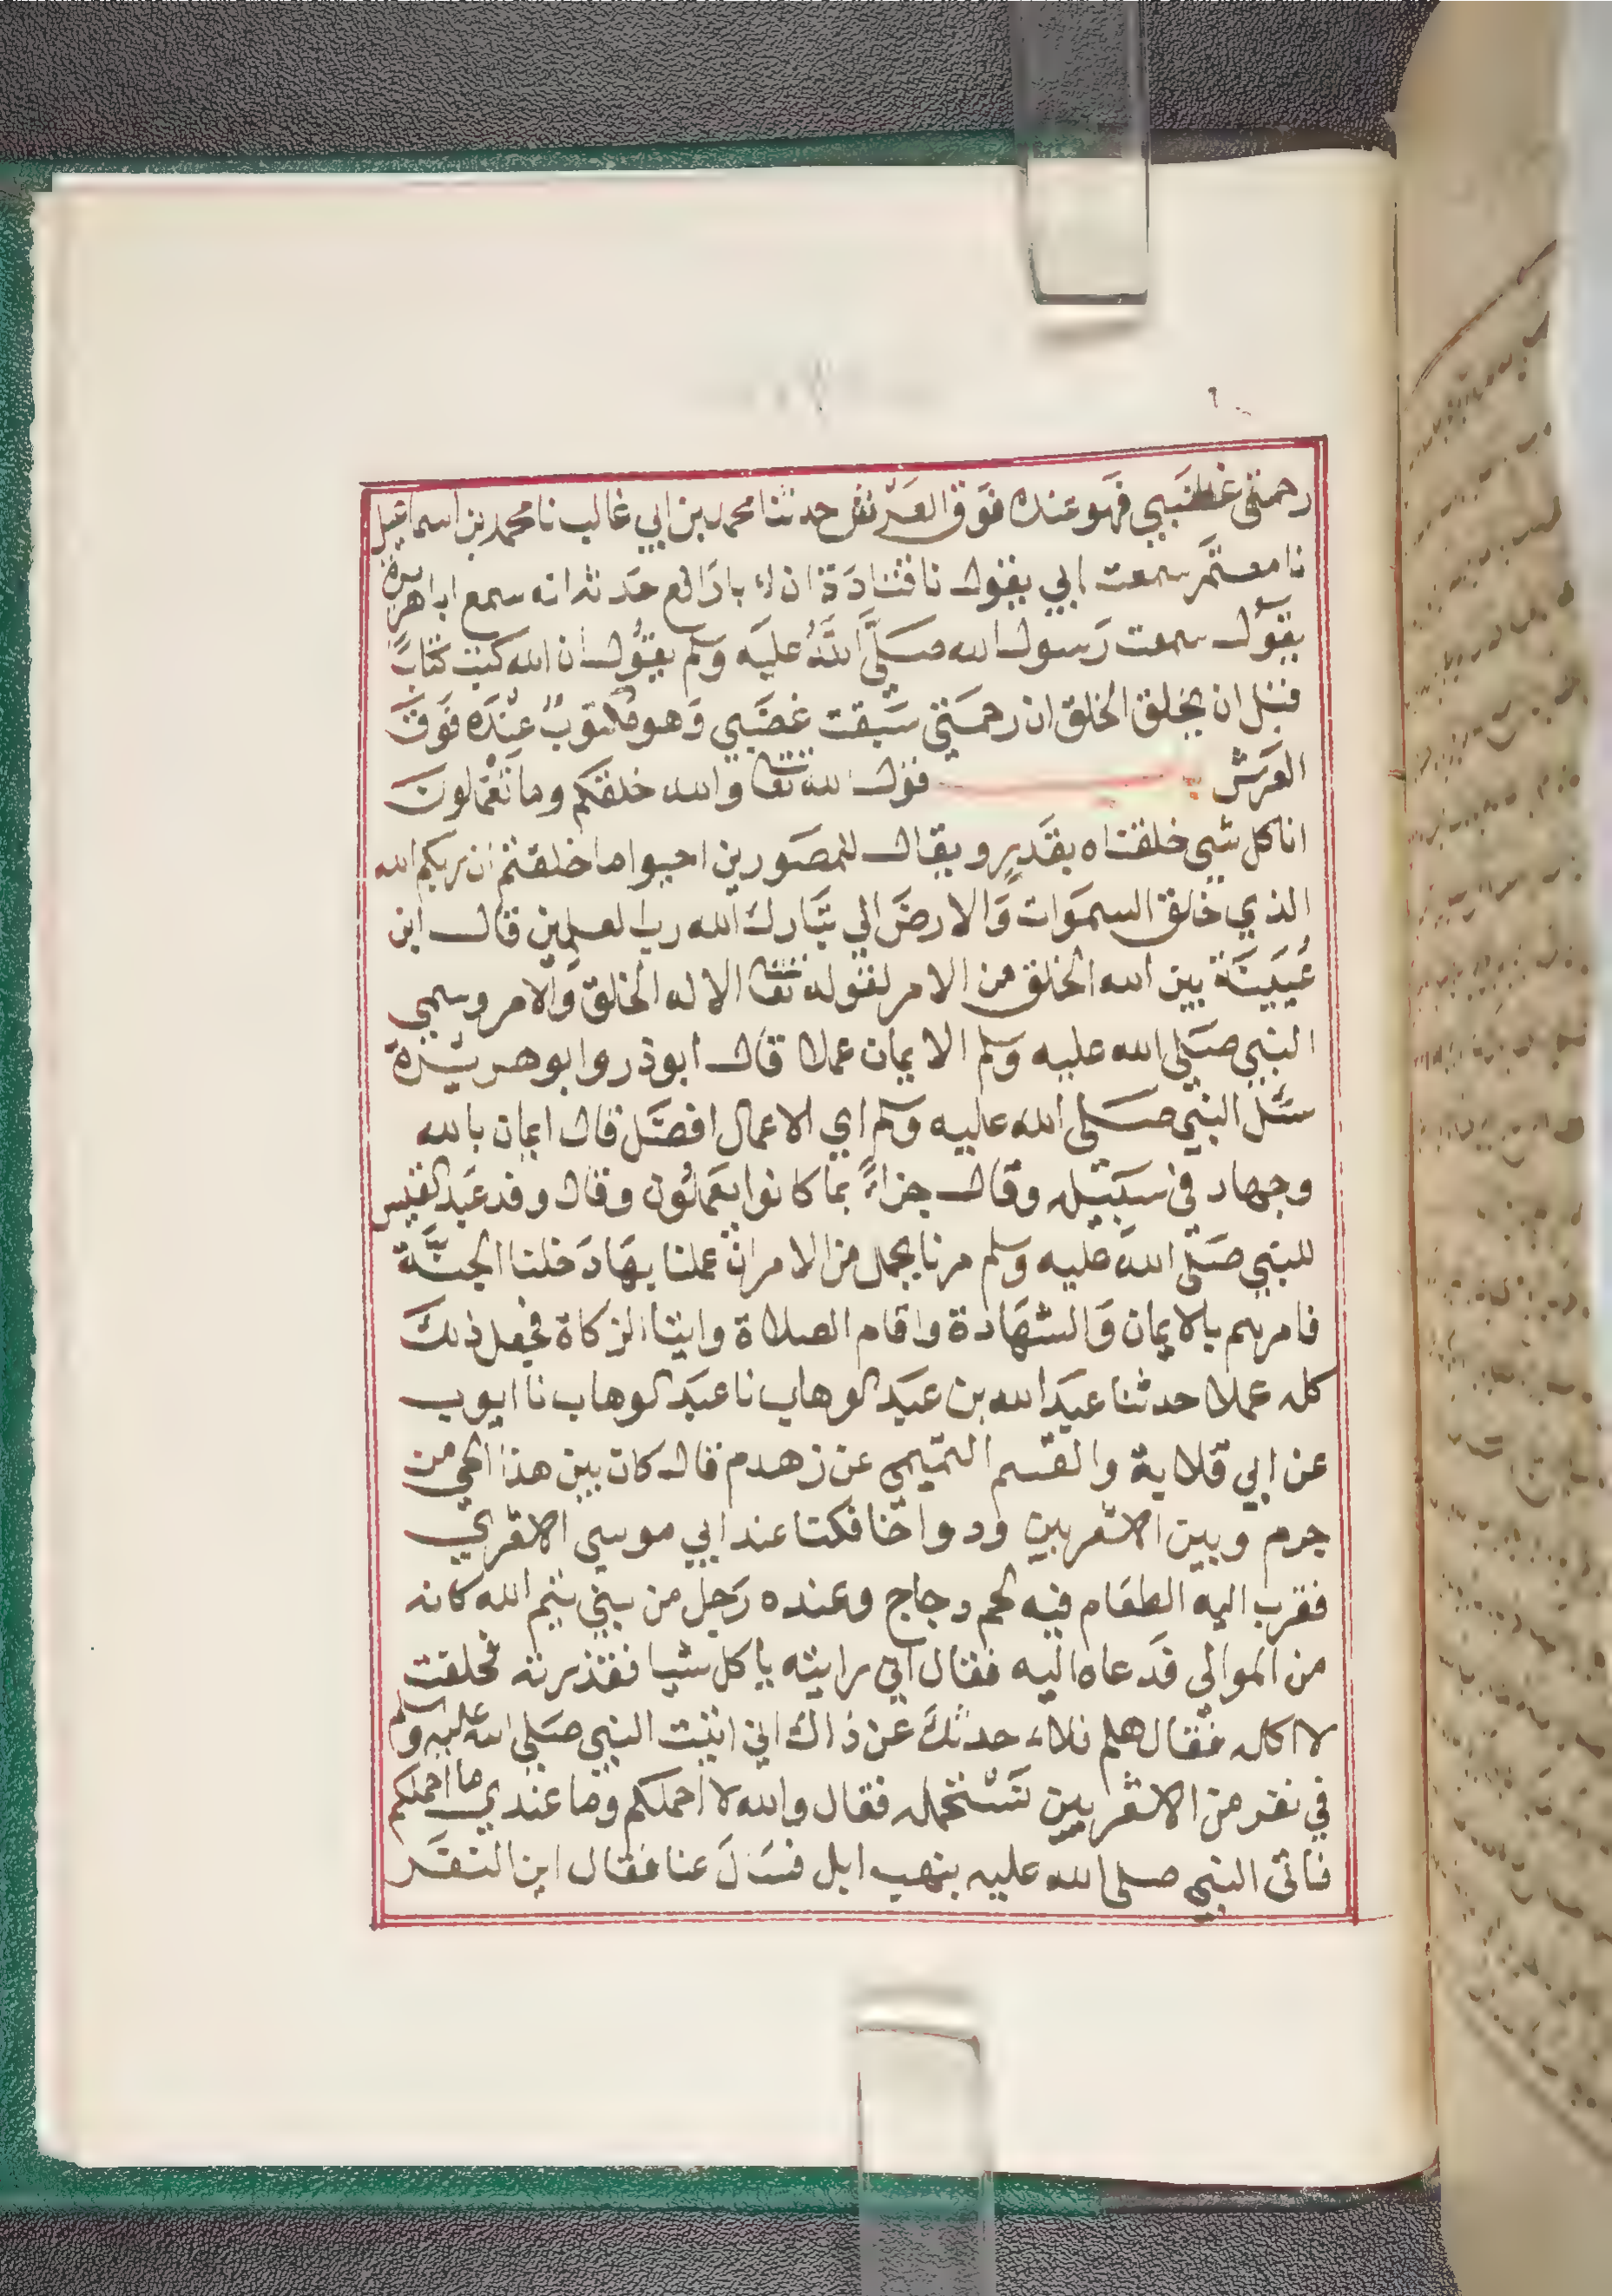 رحمتي غضبي فهو عنده فوق العرش حدثنا محمد بن ابي غالب نا محمد بن اسماعيل
نا معتمر سمعت ابي يقول نا قتادة ان ابا رافع حدثه انه سمع ابا هريرة
يقول سمعت رسول الله صلى الله عليه وسلم يقول ان الله كتب كتابا
قبل ان يخلق الخلق ان رحمتي سبقت غضبي وهو مكتوب عنده فوق
العرش قول الله تعا والله خلقكم وما تعملون
انا كل شي خلقناه بقدر ويقال للمصورين احيوا ما خلقتم ان ربكم الله
الذي خالق السموات والارض الي تبارك الله رب العلمين قال ابن
عيينة بين الله الخلق من الامر لقوله تعا الا له الخلق والامر وسمي
النبي صلى الله عليه وسلم الايمان عملا قال ابو ذر وابو هريرة
سئل النبي صلى الله عليه وسلم اي الاعمال افضل قال ايمان بالله
وجهاد في سبيله وقال جزاء بما كانوا يعملون وقال وفد عبد القيس
للنبي صلى الله عليه وسلم مرنا بجمل من الامر ان عملنا بها دخلنا الجنة
فامرهم بالايمان والشهادة واقام الصلاة وايتا الزكاة فجعل ذلك
كله عملا حدثنا عبد الله بن عبد الوهاب نا عبد الوهاب نا ايوب
عن ابي قلابة والقسم التميمي عن زهدم قال كان بين هذا الحي من
جرم وبين الاشعريين ود واخا فكنا عند ابي موسي الاشعري
فقرب اليه الطعام فيه لحم دجاج وعنده رجل من بني تيم الله كانه
من الموالي فدعاه اليه فقال اني رايته ياكل شيا فقذرته فحلفت
لا اكله فقال هلم فلاحدثك عن ذاك اني اتيت النبي صلى الله عليه وسلم
في نفر من الاشعريين نستحمله فقال والله لا احملكم وما عندي ما احملكم
فاتى النبي صلى الله عليه بنهب ابل فسال عنا فقال اين النفر